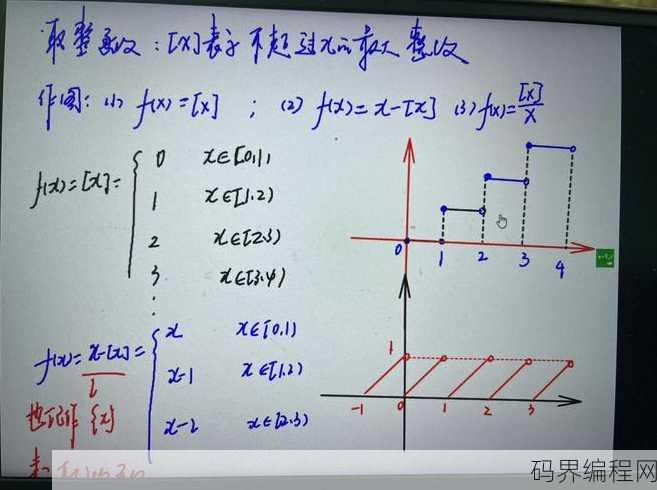 取整函数：[x]表示不超过x的最大整数
作图：(1) f(x)=[x] ； (2) f(x)=x-[x] (3) f(x)=[x]/x
f(x)=[x]= { 0 x∈[0,1)
1 x∈[1,2)
2 x∈[2,3)
3 x∈[3,4)
⋮
0 1 2 3 4
f(x)=x-[x]= { x x∈[0,1)
x-1 x∈[1,2)
x-2 x∈[2,3)
也记作 {x}
1
-1 0 1 2 3
码界编程网